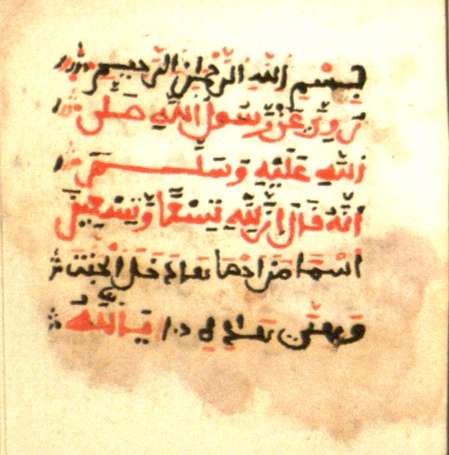 بسم الله الرحمن الرحيم
روي عن رسول الله صلى
الله عليه وسلم
أنه قال إن لله تسعا وتسعين
اسما من ... دخل الجنة
يا الله